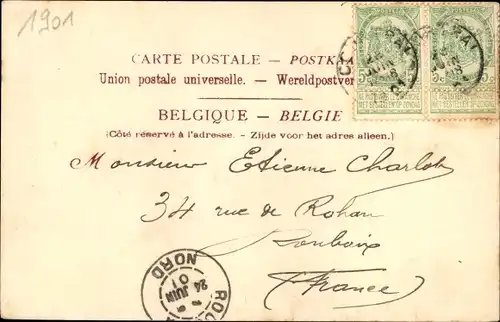 1901
CARTE POSTALE — POSTKA
Union postale universelle. — Wereldpostver
BELGIQUE — BELGIE
(Côté réservé à l'adresse. - Zijde voor het adres alleen.)
Monsieur Etienne Charlot
34 rue de Rohan
Roubaix
(France)
ROU
NORD
24
JUIN
01